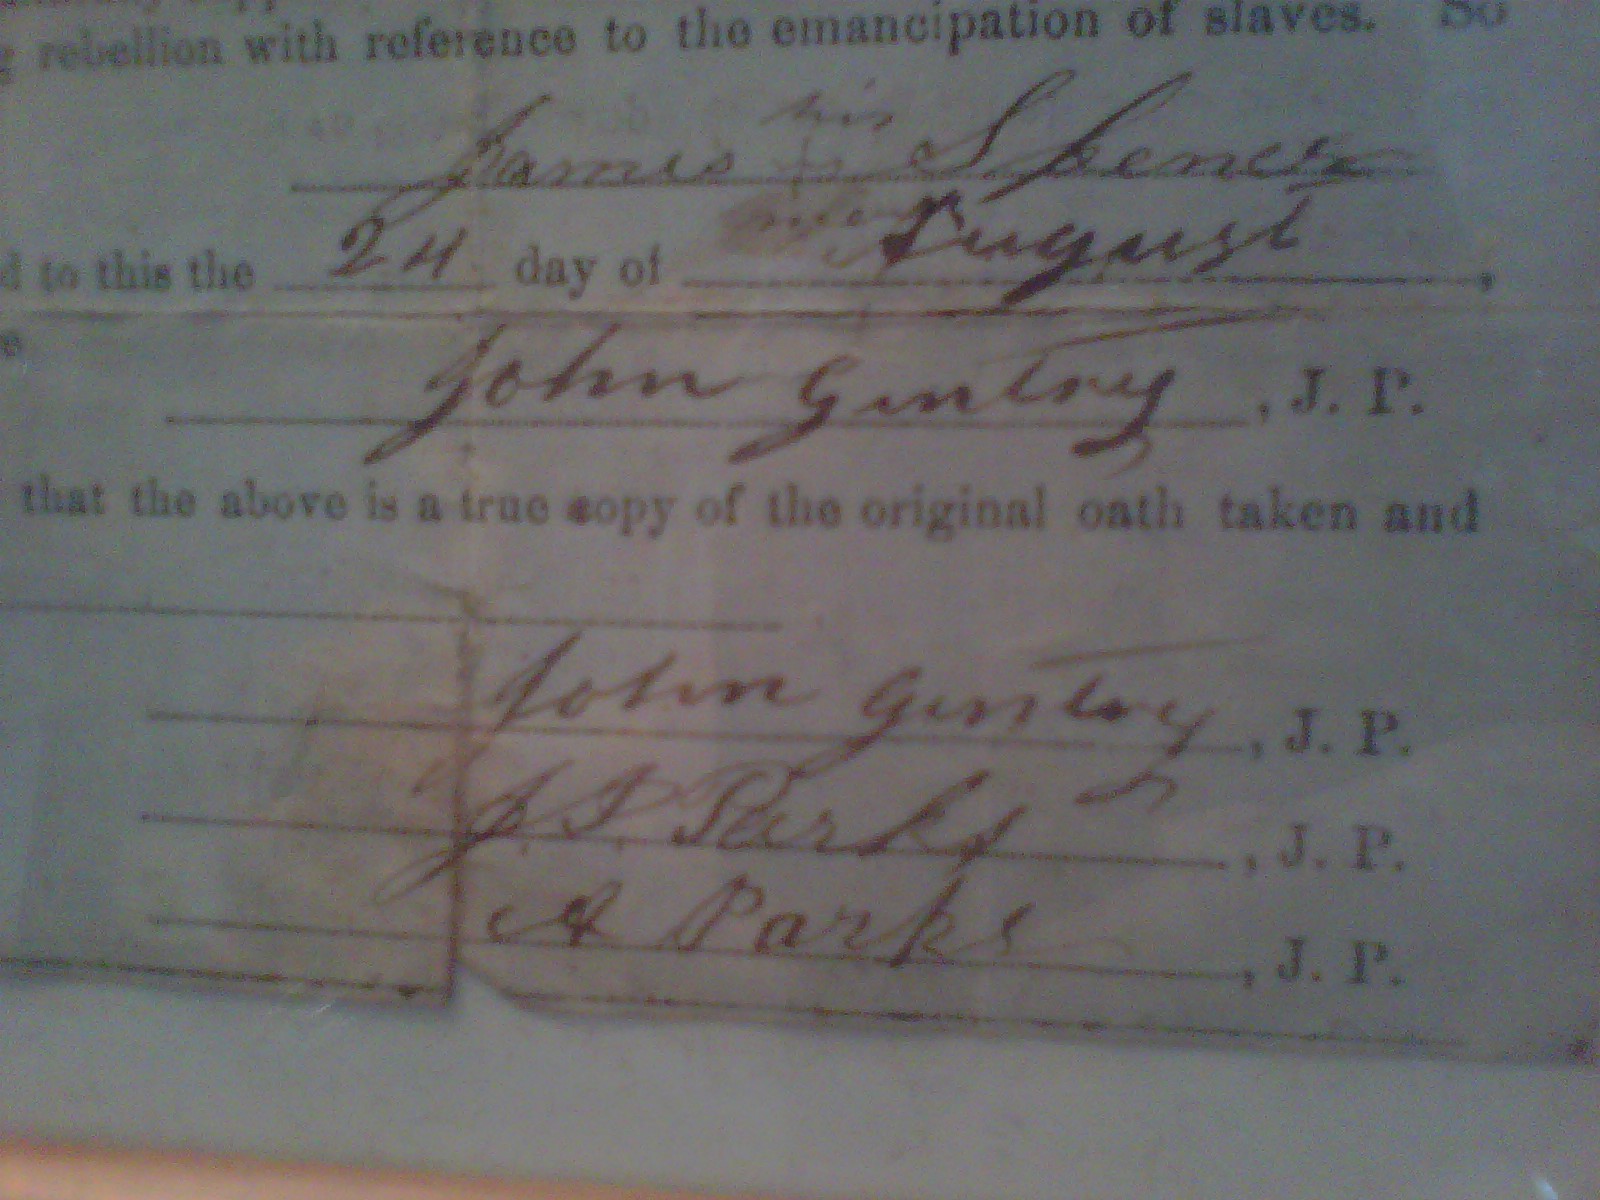 rebellion with reference to the emancipation of slaves. So
his
James + Spencer
mark
d to this the 24 day of August,
e
John Gentry, J. P.
that the above is a true copy of the original oath taken and
John Gentry, J. P.
J P Parks, J. P.
A Parks, J. P.